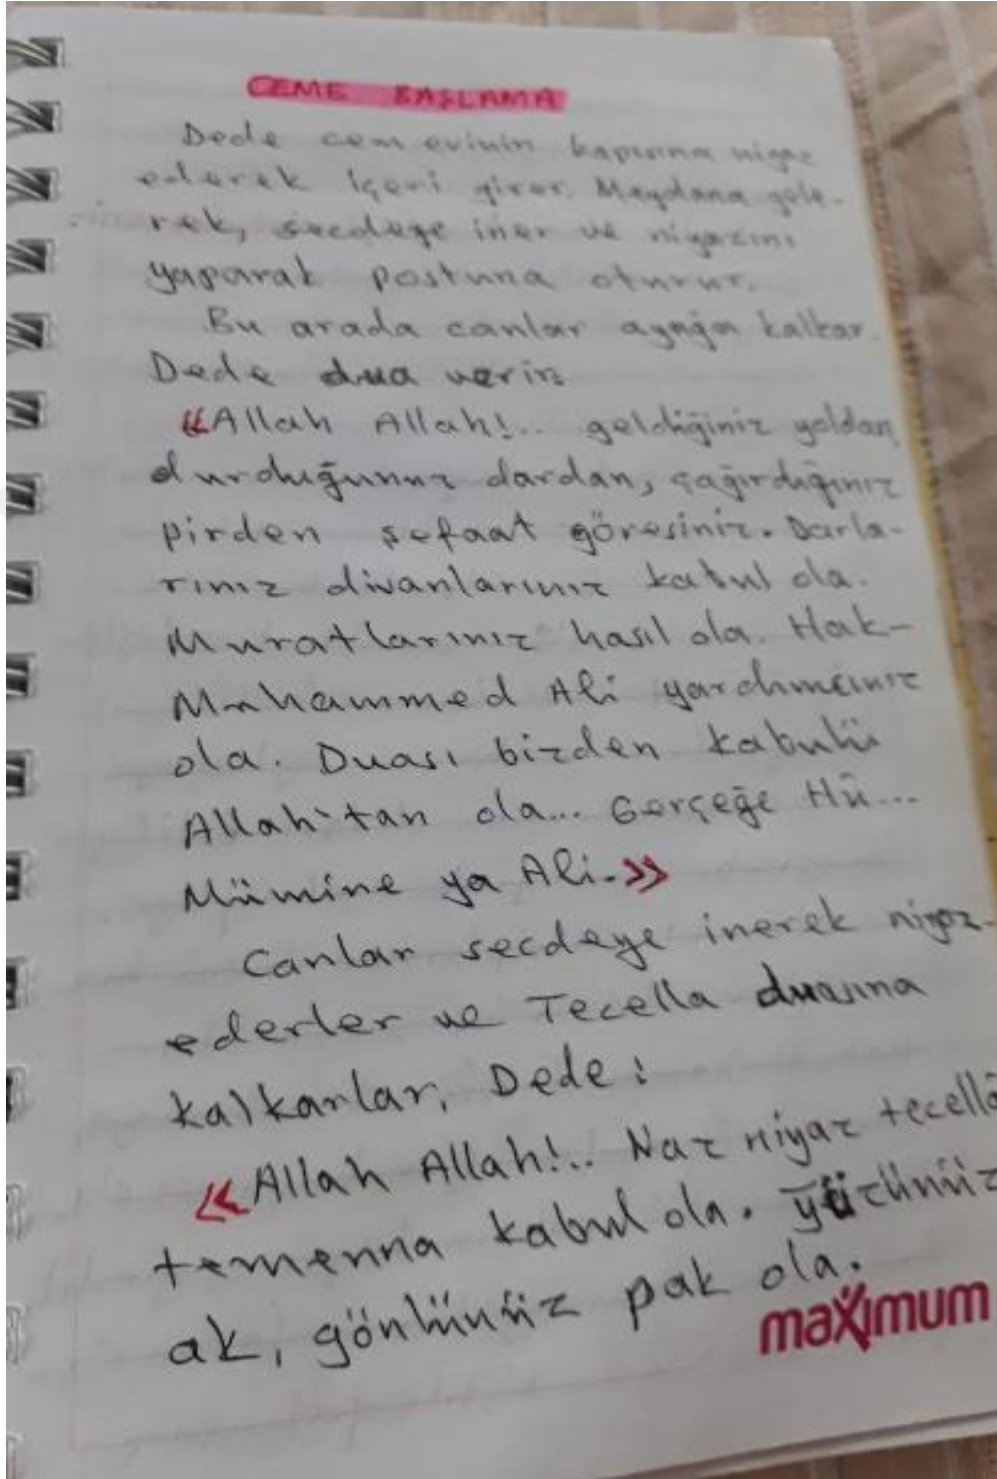 CEME BAŞLAMA
Dede cem evinin kapısına niyaz
ederek içeri girer. Meydana gele-
rek, secdeye iner ve niyazını
yaparak postuna oturur.
Bu arada canlar ayağa kalkar.
Dede dua verir:
«Allah Allah!.. geldiğiniz yoldan,
durduğunuz dardan, çağırdığınız
pirden şefaat göresiniz. Darla-
rınız divanlarınız kabul ola.
Muratlarınız hasıl ola. Hak-
Muhammed Ali yardımcınız
ola. Duası bizden kabulü
Allah'tan ola... Gerçeğe Hü...
Mümine ya Ali.»
Canlar secdeye inerek niyaz-
ederler ve Tecella duasına
kalkarlar, Dede:
«Allah Allah!.. Naz niyaz tecellâ
temenna kabul ola. Yüzünüz
ak, gönlünüz pak ola.
maximum